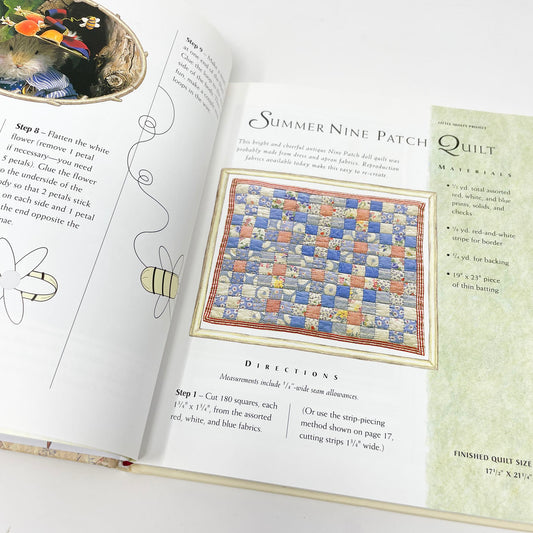 Step 9 –
at one end of
Glue the
side of
fun, make
loops in the
Step 8 – Flatten the white
flower (remove 1 petal
if necessary—you need
5 petals). Glue the flower
to the underside of the
body so that 2 petals stick
on each side and 1 petal
the end opposite the
LITTLE QUILTS PROJECT
SUMMER NINE PATCH QUILT
This bright and cheerful antique Nine Patch doll quilt was
probably made from dress and apron fabrics. Reproduction
fabrics available today make this easy to re-create
MATERIALS
• yd. total assorted
red, white, and blue
prints, solids, and
checks
• 1/4 yd. red-and-white
stripe for border
• 3/4 yd. for backing
• 19" x 23" piece
of thin batting
DIRECTIONS
Measurements include 1/4"-wide seam allowances.
Step 1 – Cut 180 squares, each
1 3/4" x 1 3/4", from the assorted
red, white, and blue fabrics.
(Or use the strip-piecing
method shown on page 17,
cutting strips 1 3/4" wide.)
FINISHED QUILT SIZE
17 1/2" X 21 1/4"